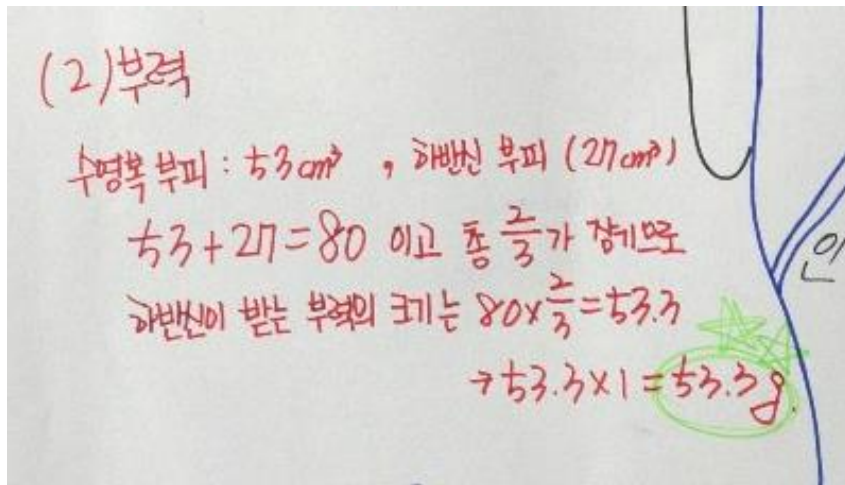 (2) 부력
수영복 부피 : 53cm³ , 하반신 부피 (27cm³)
53+27=80 이고 총 2/3가 잠기므로
하반신이 받는 부력의 크기는 80×2/3=53.3
→53.3×1=53.3g.